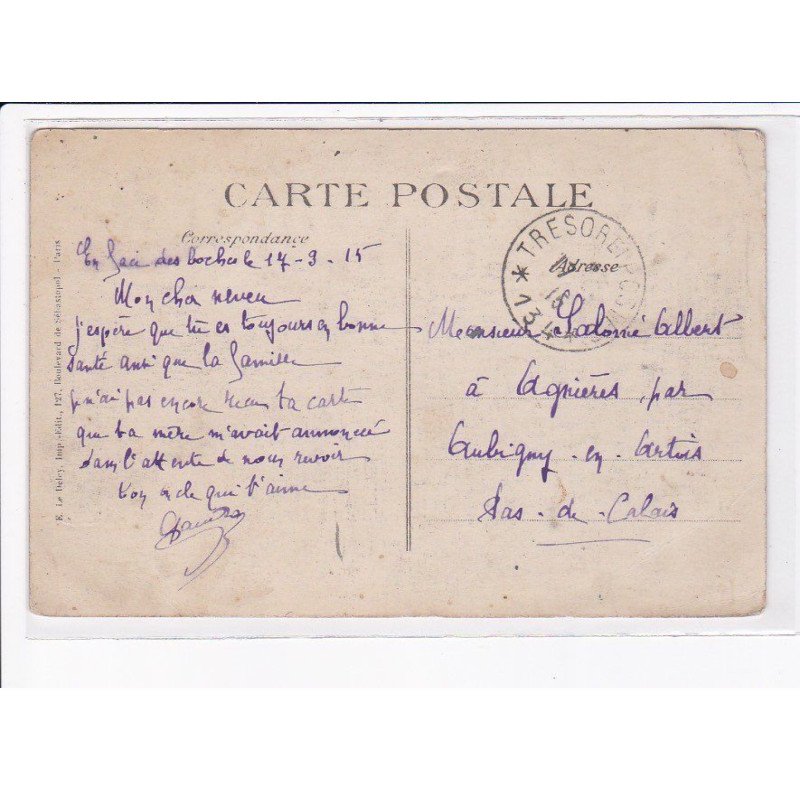 CARTE POSTALE
Correspondance
En face des boches le 17-3-15
Mon cher neveu
j'espère que tu es toujours en bonne
santé ainsi que la famille
je n'ai pas encore recu ta carte
que ta mère m'avait annoncée
dans l'attente de nous revoir
ton oncle qui t'aime
E. Le Deley, Imp.-Edit., 127, Boulevard de Sébastopol - Paris
TRESOR ET POSTES
* 134 *
15
Adresse
Monsieur Salomé Albert
à Agnières par
Aubigny-en-Artois
Pas-de-Calais